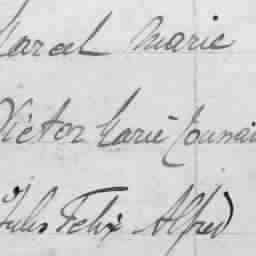 Marcel Marie
Victor Marie
Jules Felix Alfred